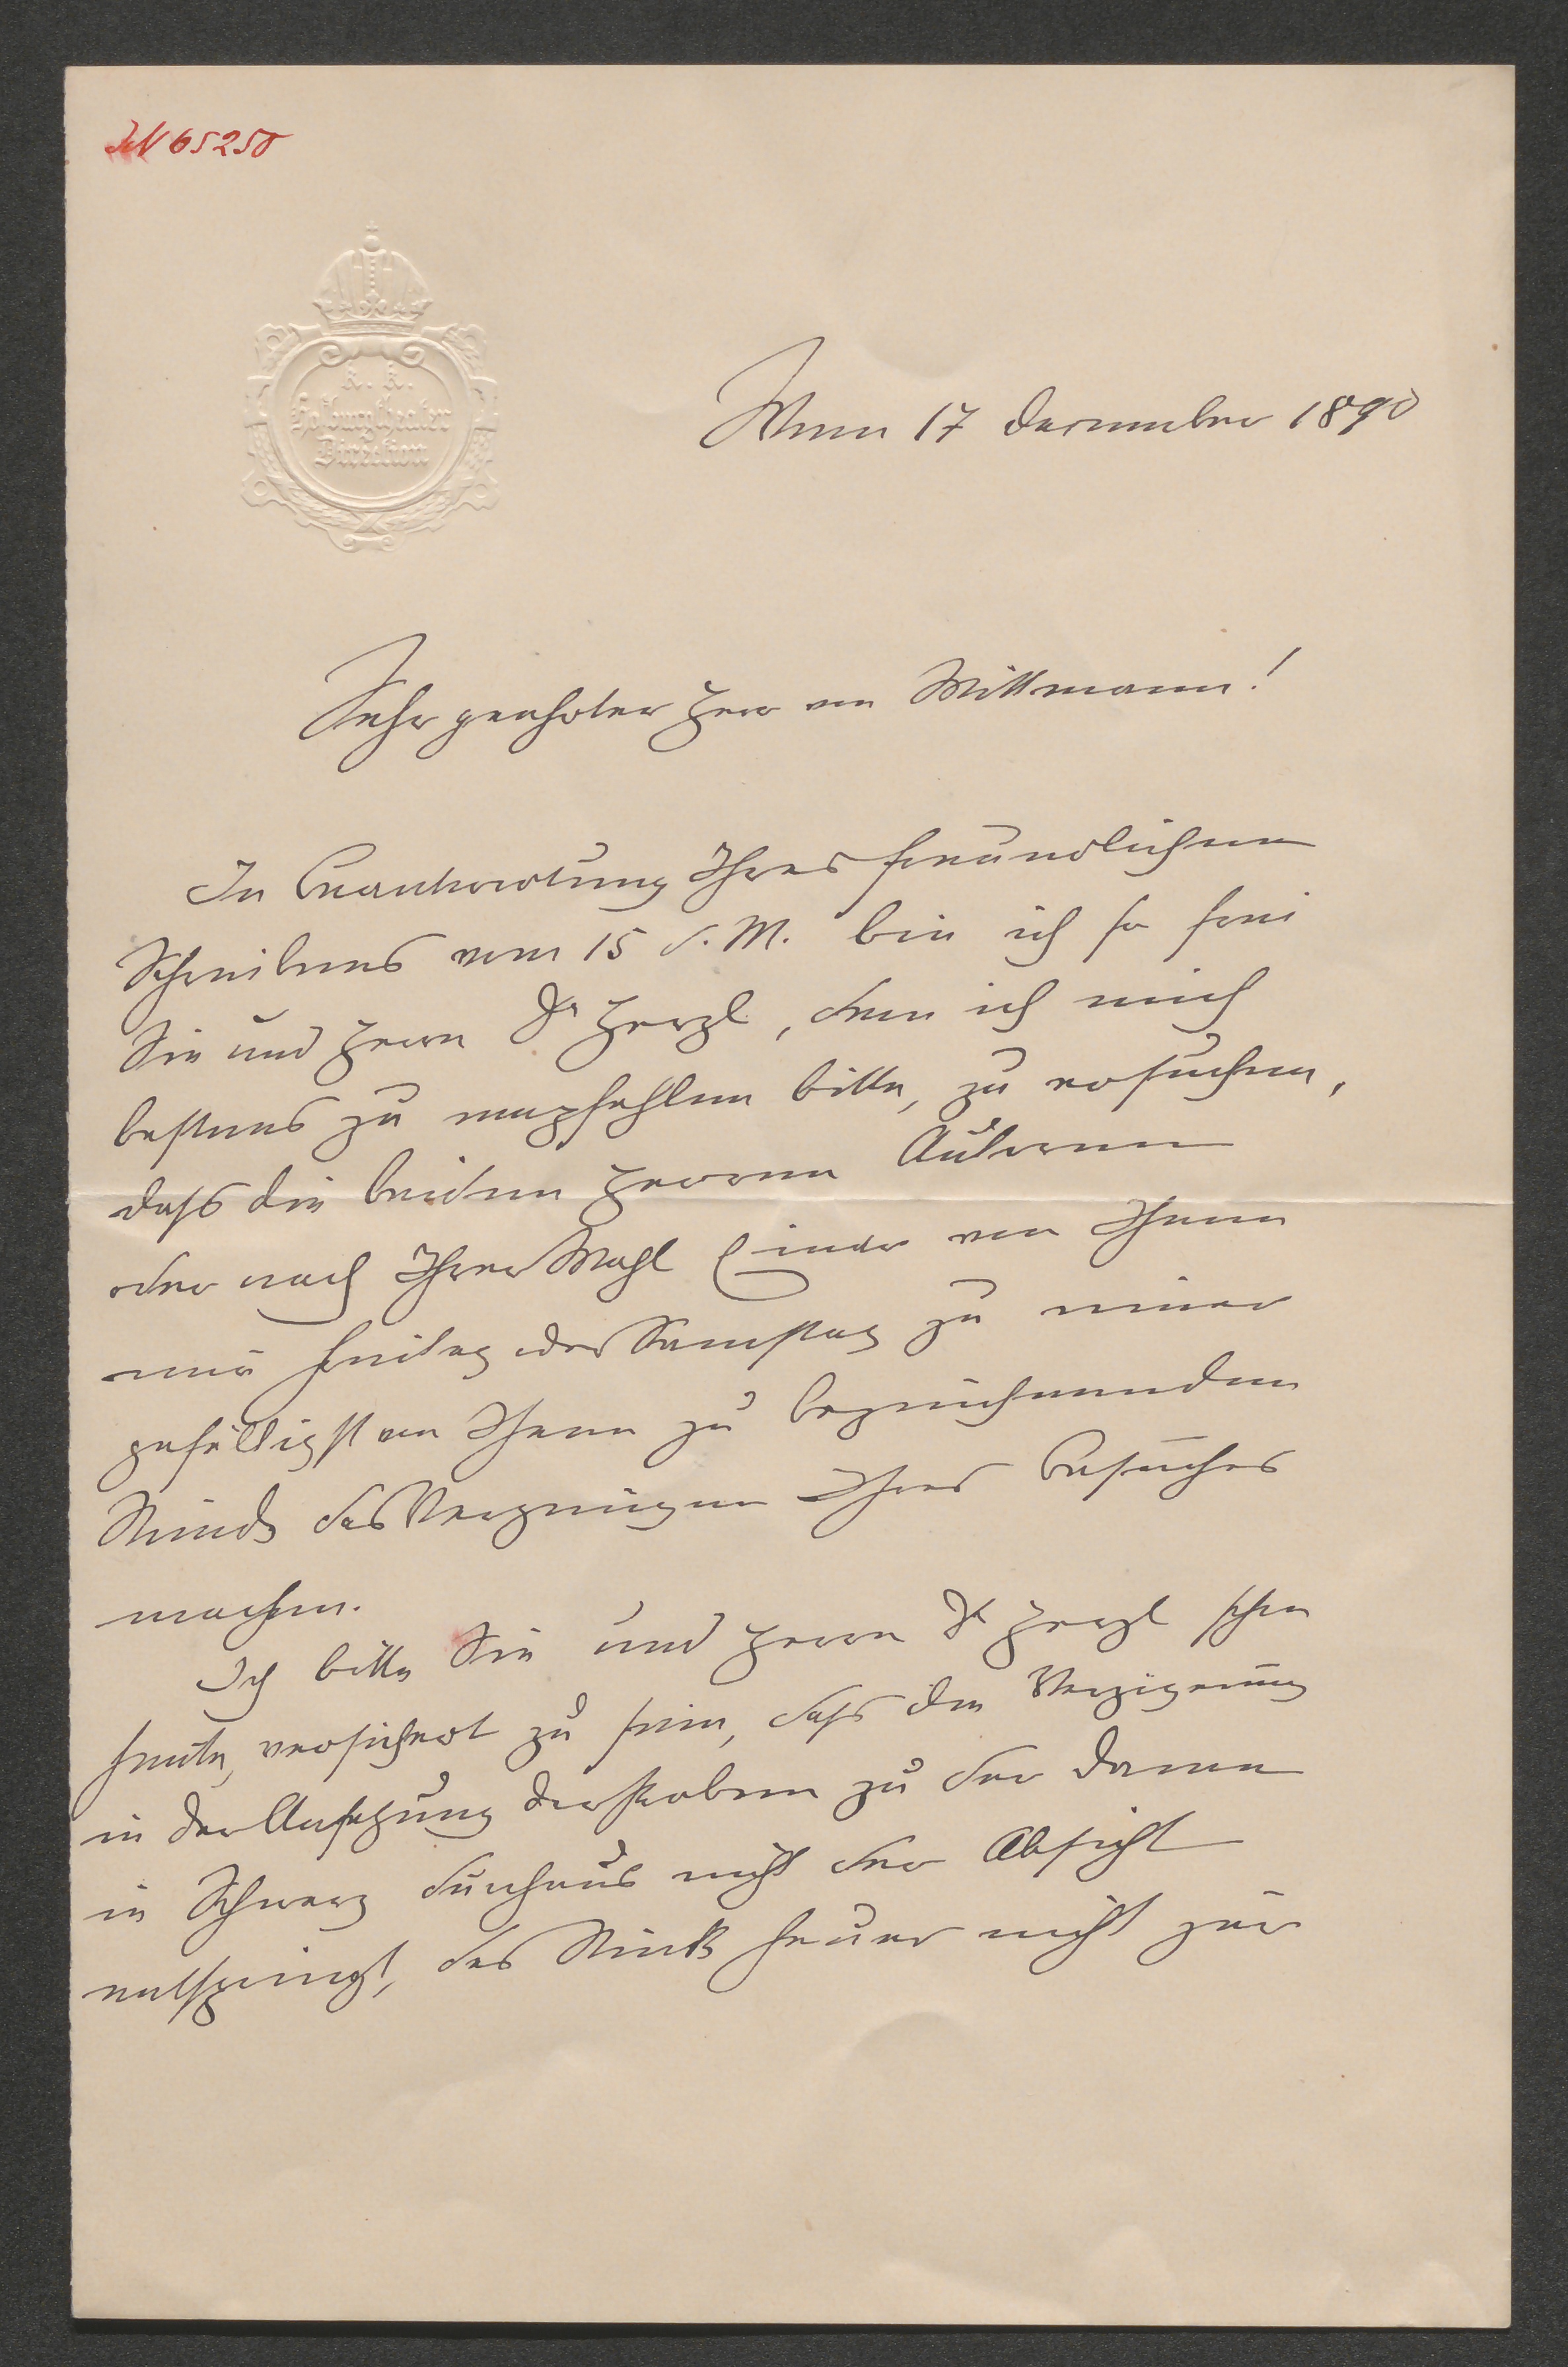 JN 65258
K. K.
Hofburgtheater
Direktion
Wien 17 December 1890
Sehr geehrter Herr von Wittmann!
In Beantwortung Ihres freundlichen
Schreibens vom 15 d. M. bin ich so frei
Sie und Herrn Dr Herzl, dem ich mich
bestens zu empfehlen bitte, zu ersuchen,
dass die beiden Herren Autoren
oder nach Ihrer Wahl Einer von Ihnen
mir Freitag oder Samstag zu einer
gefälligst von Ihnen zu bezeichnenden
Stunde das Vergnügen Ihres Besuches
machen.
Ich bitte Sie und Herrn Dr Herzl schon
heute, versichert zu sein, dass die Verzögerung
in der Ansetzung der Proben zu der Dame
in Schwarz durchaus nicht der Absicht
entspringt, das Stück heuer nicht zur